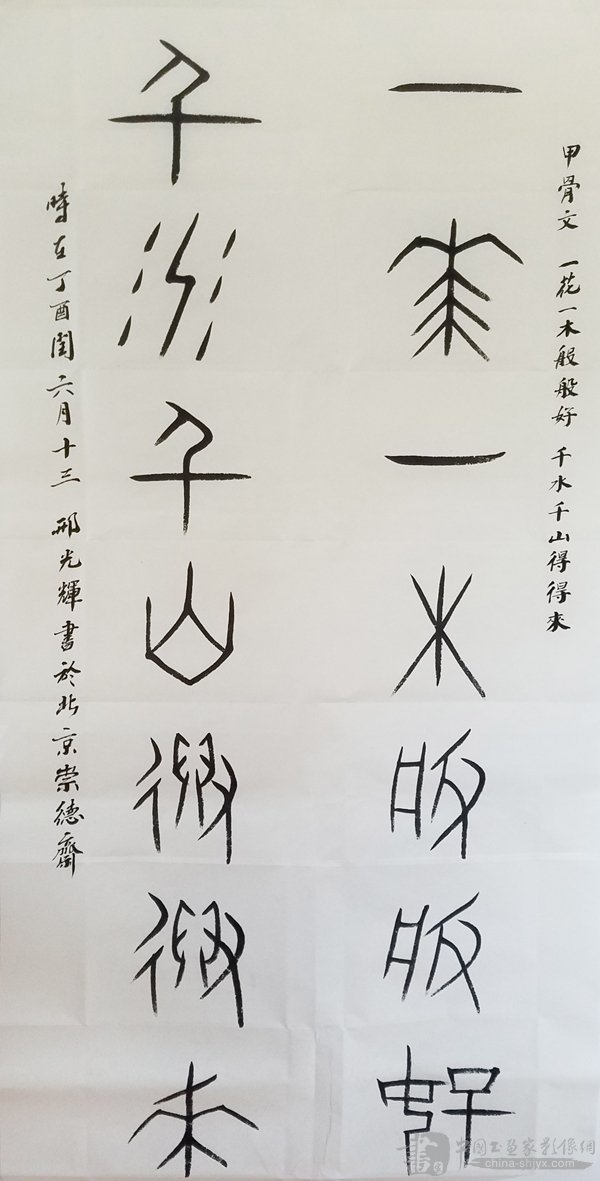 甲骨文 一花一木般般好 千水千山得得來
一花一木般般好
千水千山得得來
時在丁酉閏六月十三 邢光輝書於北京崇德齋
書 中國书画家影像網
china-shjyx.com